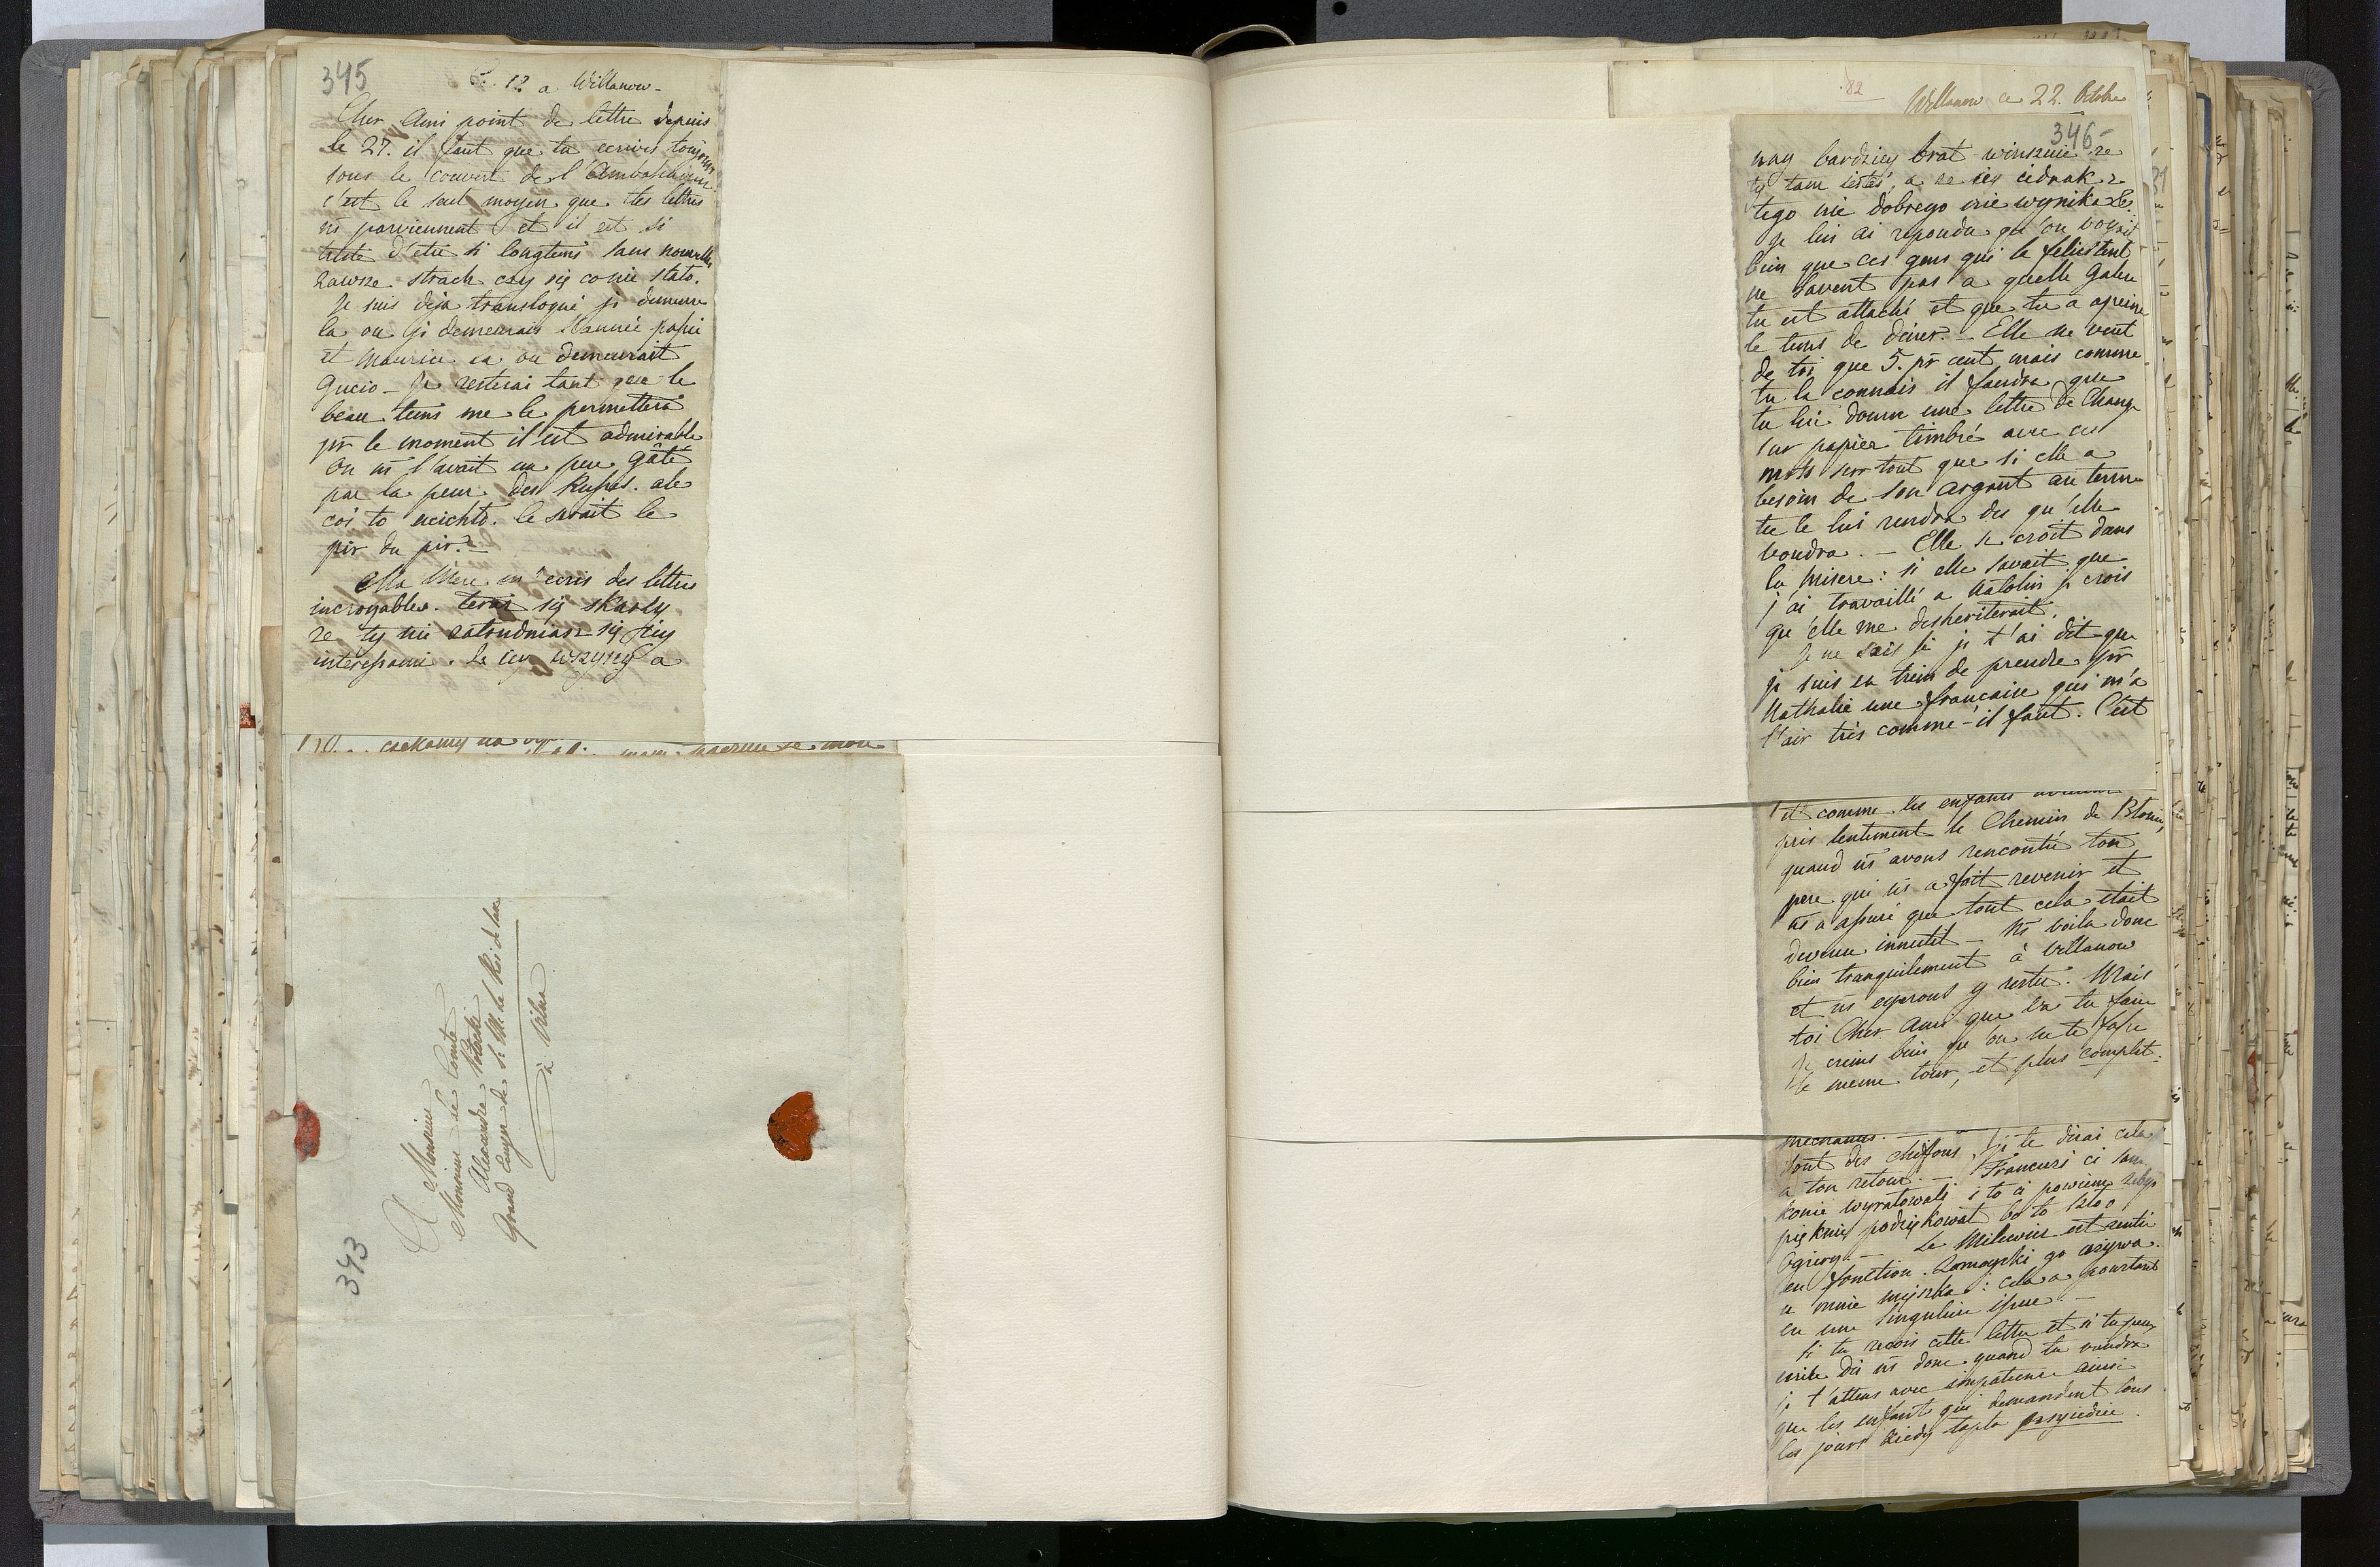 345
C. 12 a Willanow -
Cher Ami point de lettre depuis
le 27. il faut que tu ecrives toujours
sous le couvert de l'Ambassadeur
c'est le seul moyen que tes lettres
ns parviennent et il est si
triste d'etre si longtems sans nouvelles
zawsze strach czy się co nie stało.
Je suis deja transloqué je demeure
la ou je demeurais l'année passée
et Maurice la ou demeurait
Gucio - Je resterai tant que le
beau tems me le permettera
pr le moment il est admirable
on ns l'avait un peu gâté
par la peur des Russes. ale
coś to ucichło. Ce serait le
pir du pir. -
Ma Mere m'ecris des lettres
incroyables. teraz się skarży
ze ty nie zatrudniasz się jey
interessami. Ze jey wszyscy a
czekamy na
A Monsieur
Monsieur le Comte
Alexandre Potocki
Grand Ecuyer de S. M. le Roi de Saxe
à Vilna
343
82
Willanow ce 22. Octobre
346
nay bardziey brat winszuie ze
ty tam iesteś, a ze iey iednak z
tego nic dobrego nie wynika
Je lui ai repondu qu'on voyait
bien que ces gens qui le felicitent
ne savent pas a quelle Galere
tu est attaché et que tu a apeine
le tems de diner. - Elle ne veut
de toi que 5. pr cent mais comme
tu la connais il faudra que
tu lui donne une lettre de Change
sur papier timbré avec ces
mots surtout que si elle a
besoin de son argent au terme
tu le lui rendra des qu'elle
voudra. - Elle se croit dans
la Misere: si elle savait que
j'ai travaillé a Natolin je crois
qu'elle me desheriterait.
Je ne sais si je t'ai dit que
je suis en train de prendre pr
Nathalie une française qui m'a
l'air très comme-il faut. C'est
et comme les enfants
pris lentement le Chemin de Blonie,
quand ns avons rencontré ton
pere qui ns a fait revenir et
ns a assuré que tout cela était
devenu innutil - Ns voila donc
bien tranquilement à Villanow
et ns esperons y rester. Mais
toi Cher Ami que vas tu faire
Je crains bien qu'on ne te fasse
le meme tour, et plus complet-
sont des chiffons, je te dirai cela
a ton retour. - Francuzi ci
konie wyratowali i to ci powiem zebyś
pięknie podziękował bo to 1200
Ogierow. - Le Milewicz est rentré
en fonction. Zamoyski go
u mnie : cela a pourtant
eu une singuliere issue. -
Si tu reçois cette lettre et si tu peux
ecrire dis ns donc quand tu viendra
je t'attens avec impatience ainsi
que les enfants qui demandent tous
les jours kiedy tata przyiedzie.